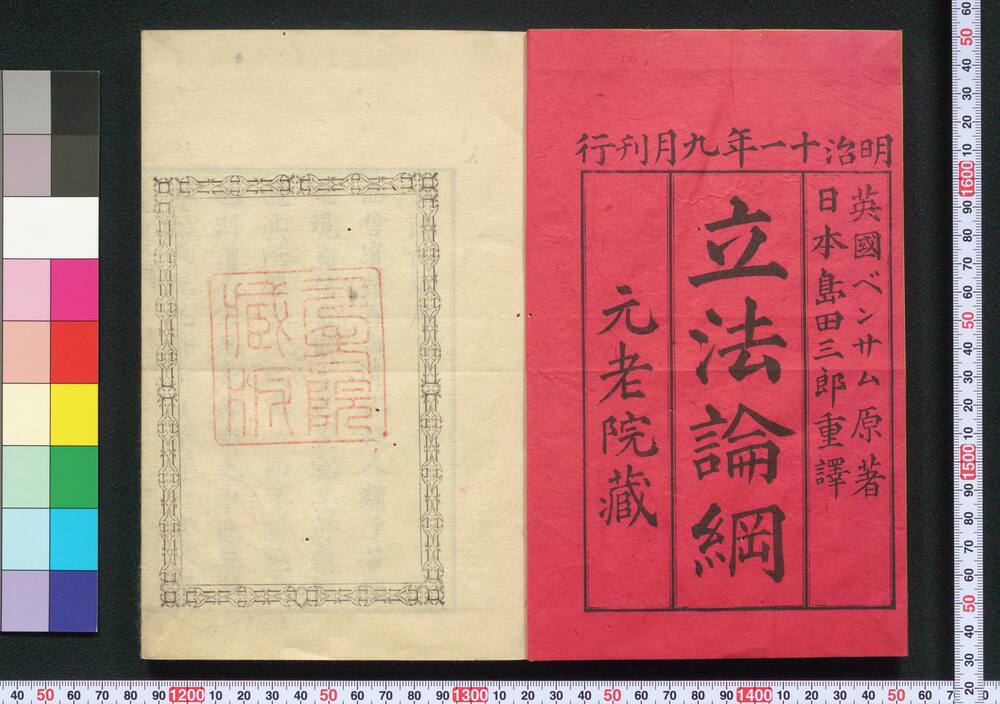 明治十一年九月刊行
英國ベンサム原著
日本島田三郎重譯
立法論綱
元老院藏
元老院
藏版